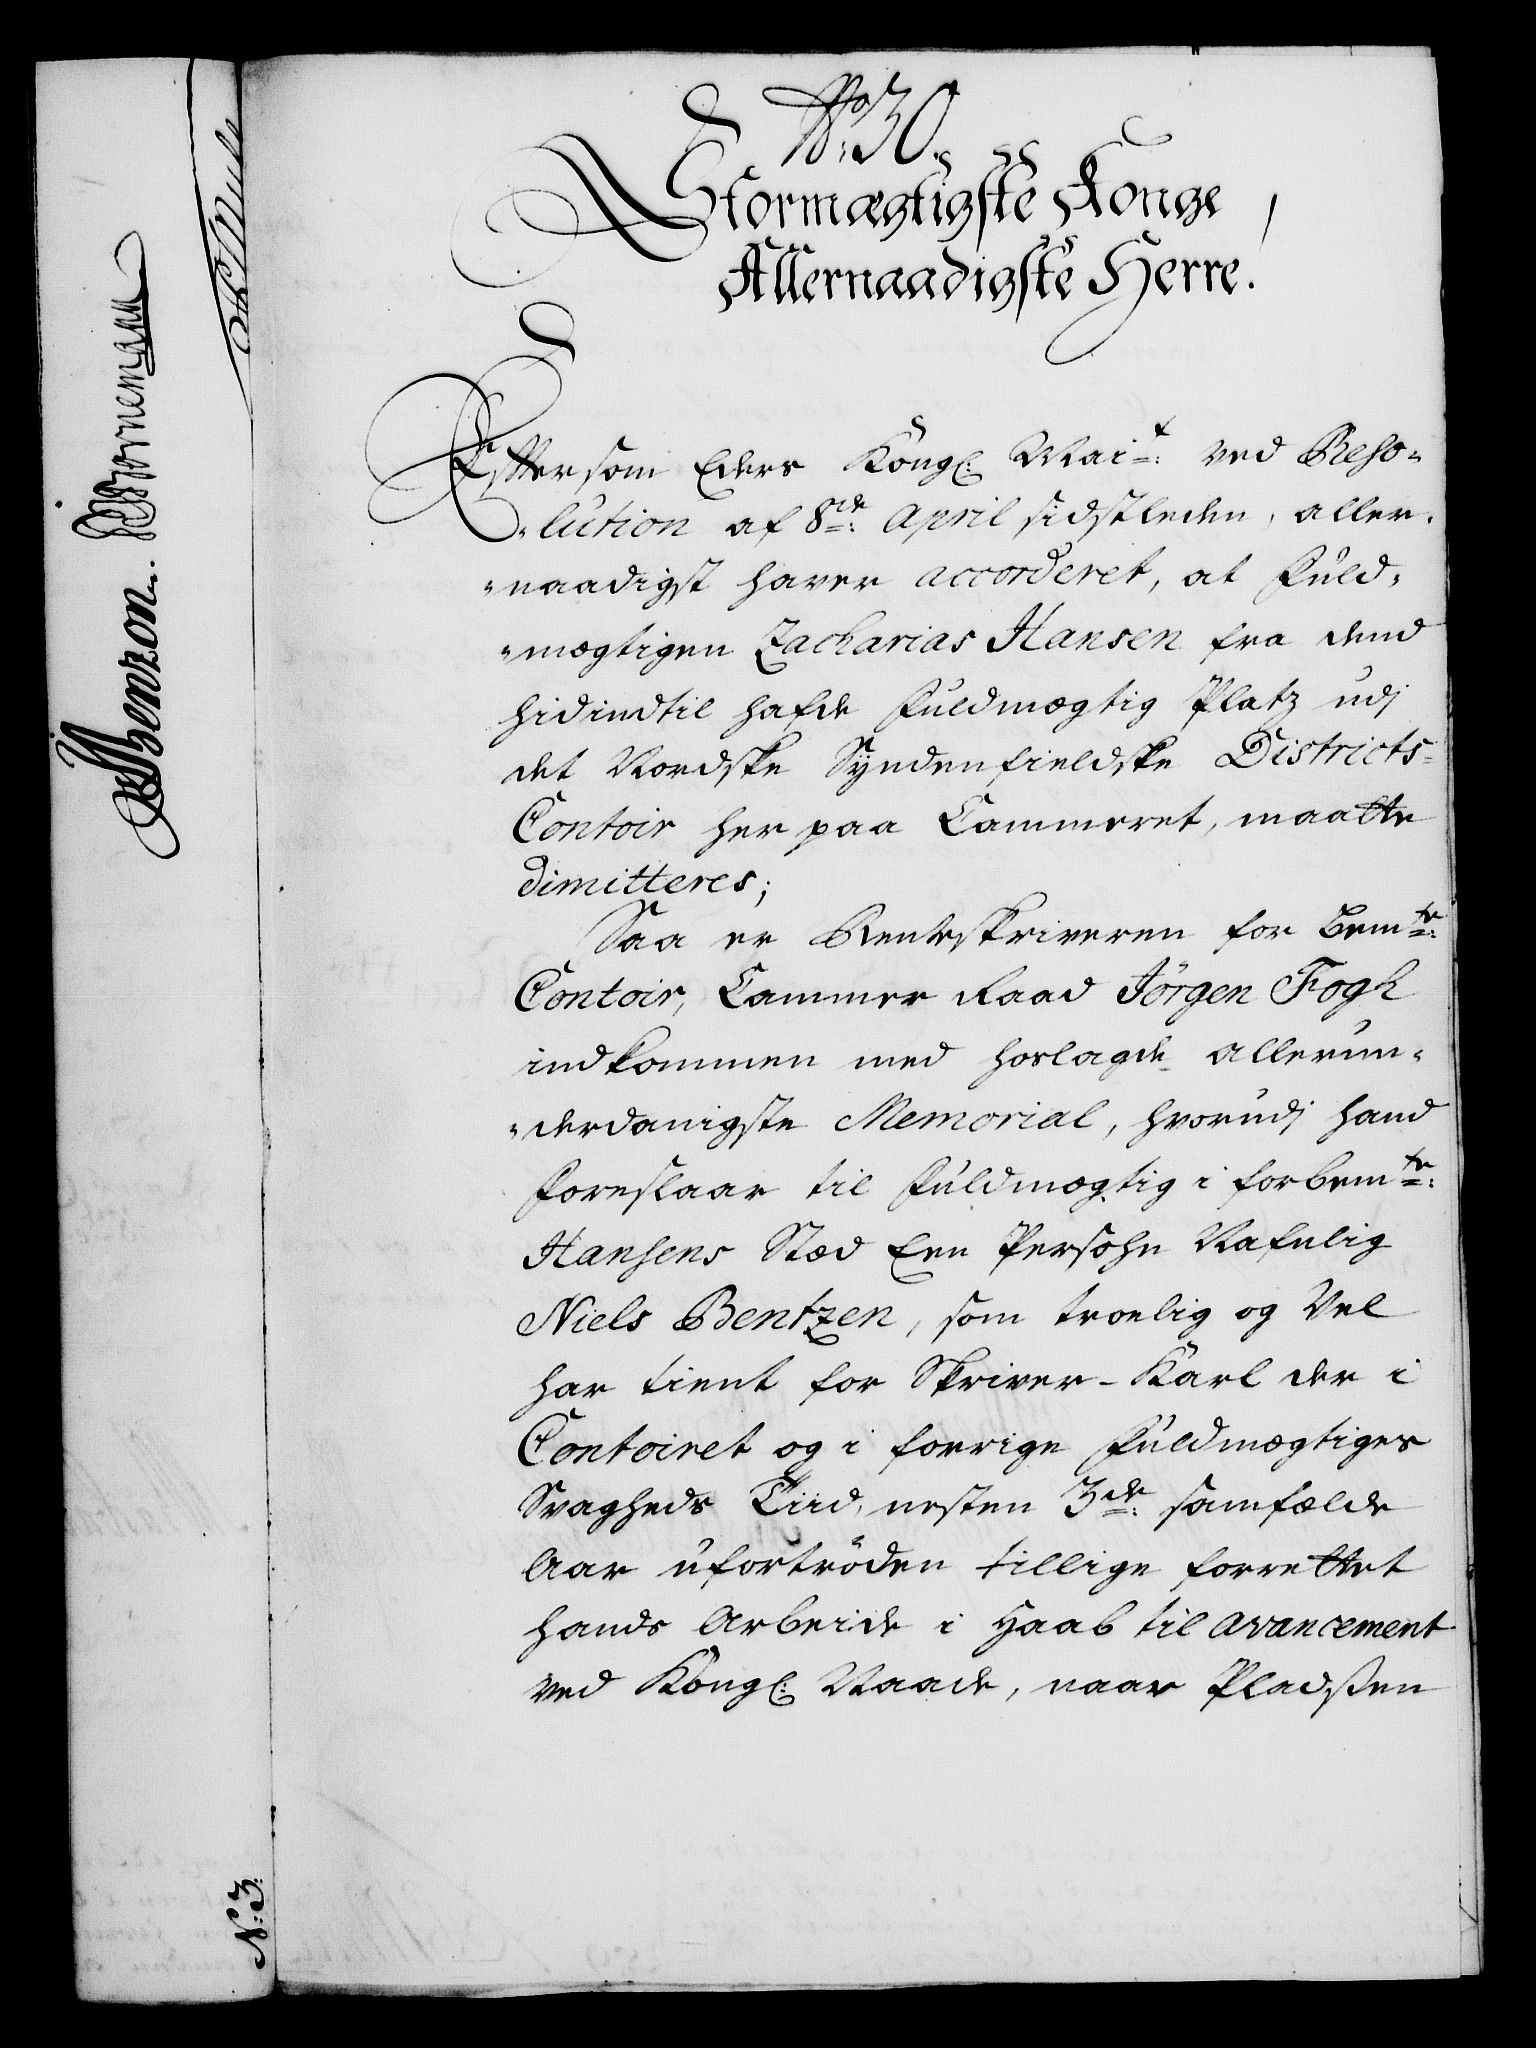 No: 30.
Stormægtigste Konge,
Allernaadigste Herre.
Efftersom Eders Kongl: Mait: ved Reso-
-lution af 8de: April sidstleden, aller-
-naadigst haver accorderet, at Fuld-
-mægtigen Zacharias Hansen fra dend
hidindtil hafde Fuldmægtig Platz udj
det Nordske Syndenfieldske Districts-
Contoir her paa Cammeret, maatte
dimitteres;
Saa er Renteskriveren for bemte:
Contoir, Cammer Raad Jörgen Fogh
indkommen med hoslagde allerun-
-derdanigste Memorial, hvorudj hand
foreslaar til Fuldmægtig i forbemte:
Hansens Stæd Een Persohn Nafnlig
Niels Bentzen, som troelig og Vel
har tient for Skriver-Karl der i
Contoiret og i forrige Fuldmægtiges
Svagheds Tiid, nesten 3de: samfælde
Aar ufortröden tillige forrettet
hands Arbeide i Haab til avancement
ved Kongl: Naade, naar Pladsen
Benzon.
Bornemann
N: 3.